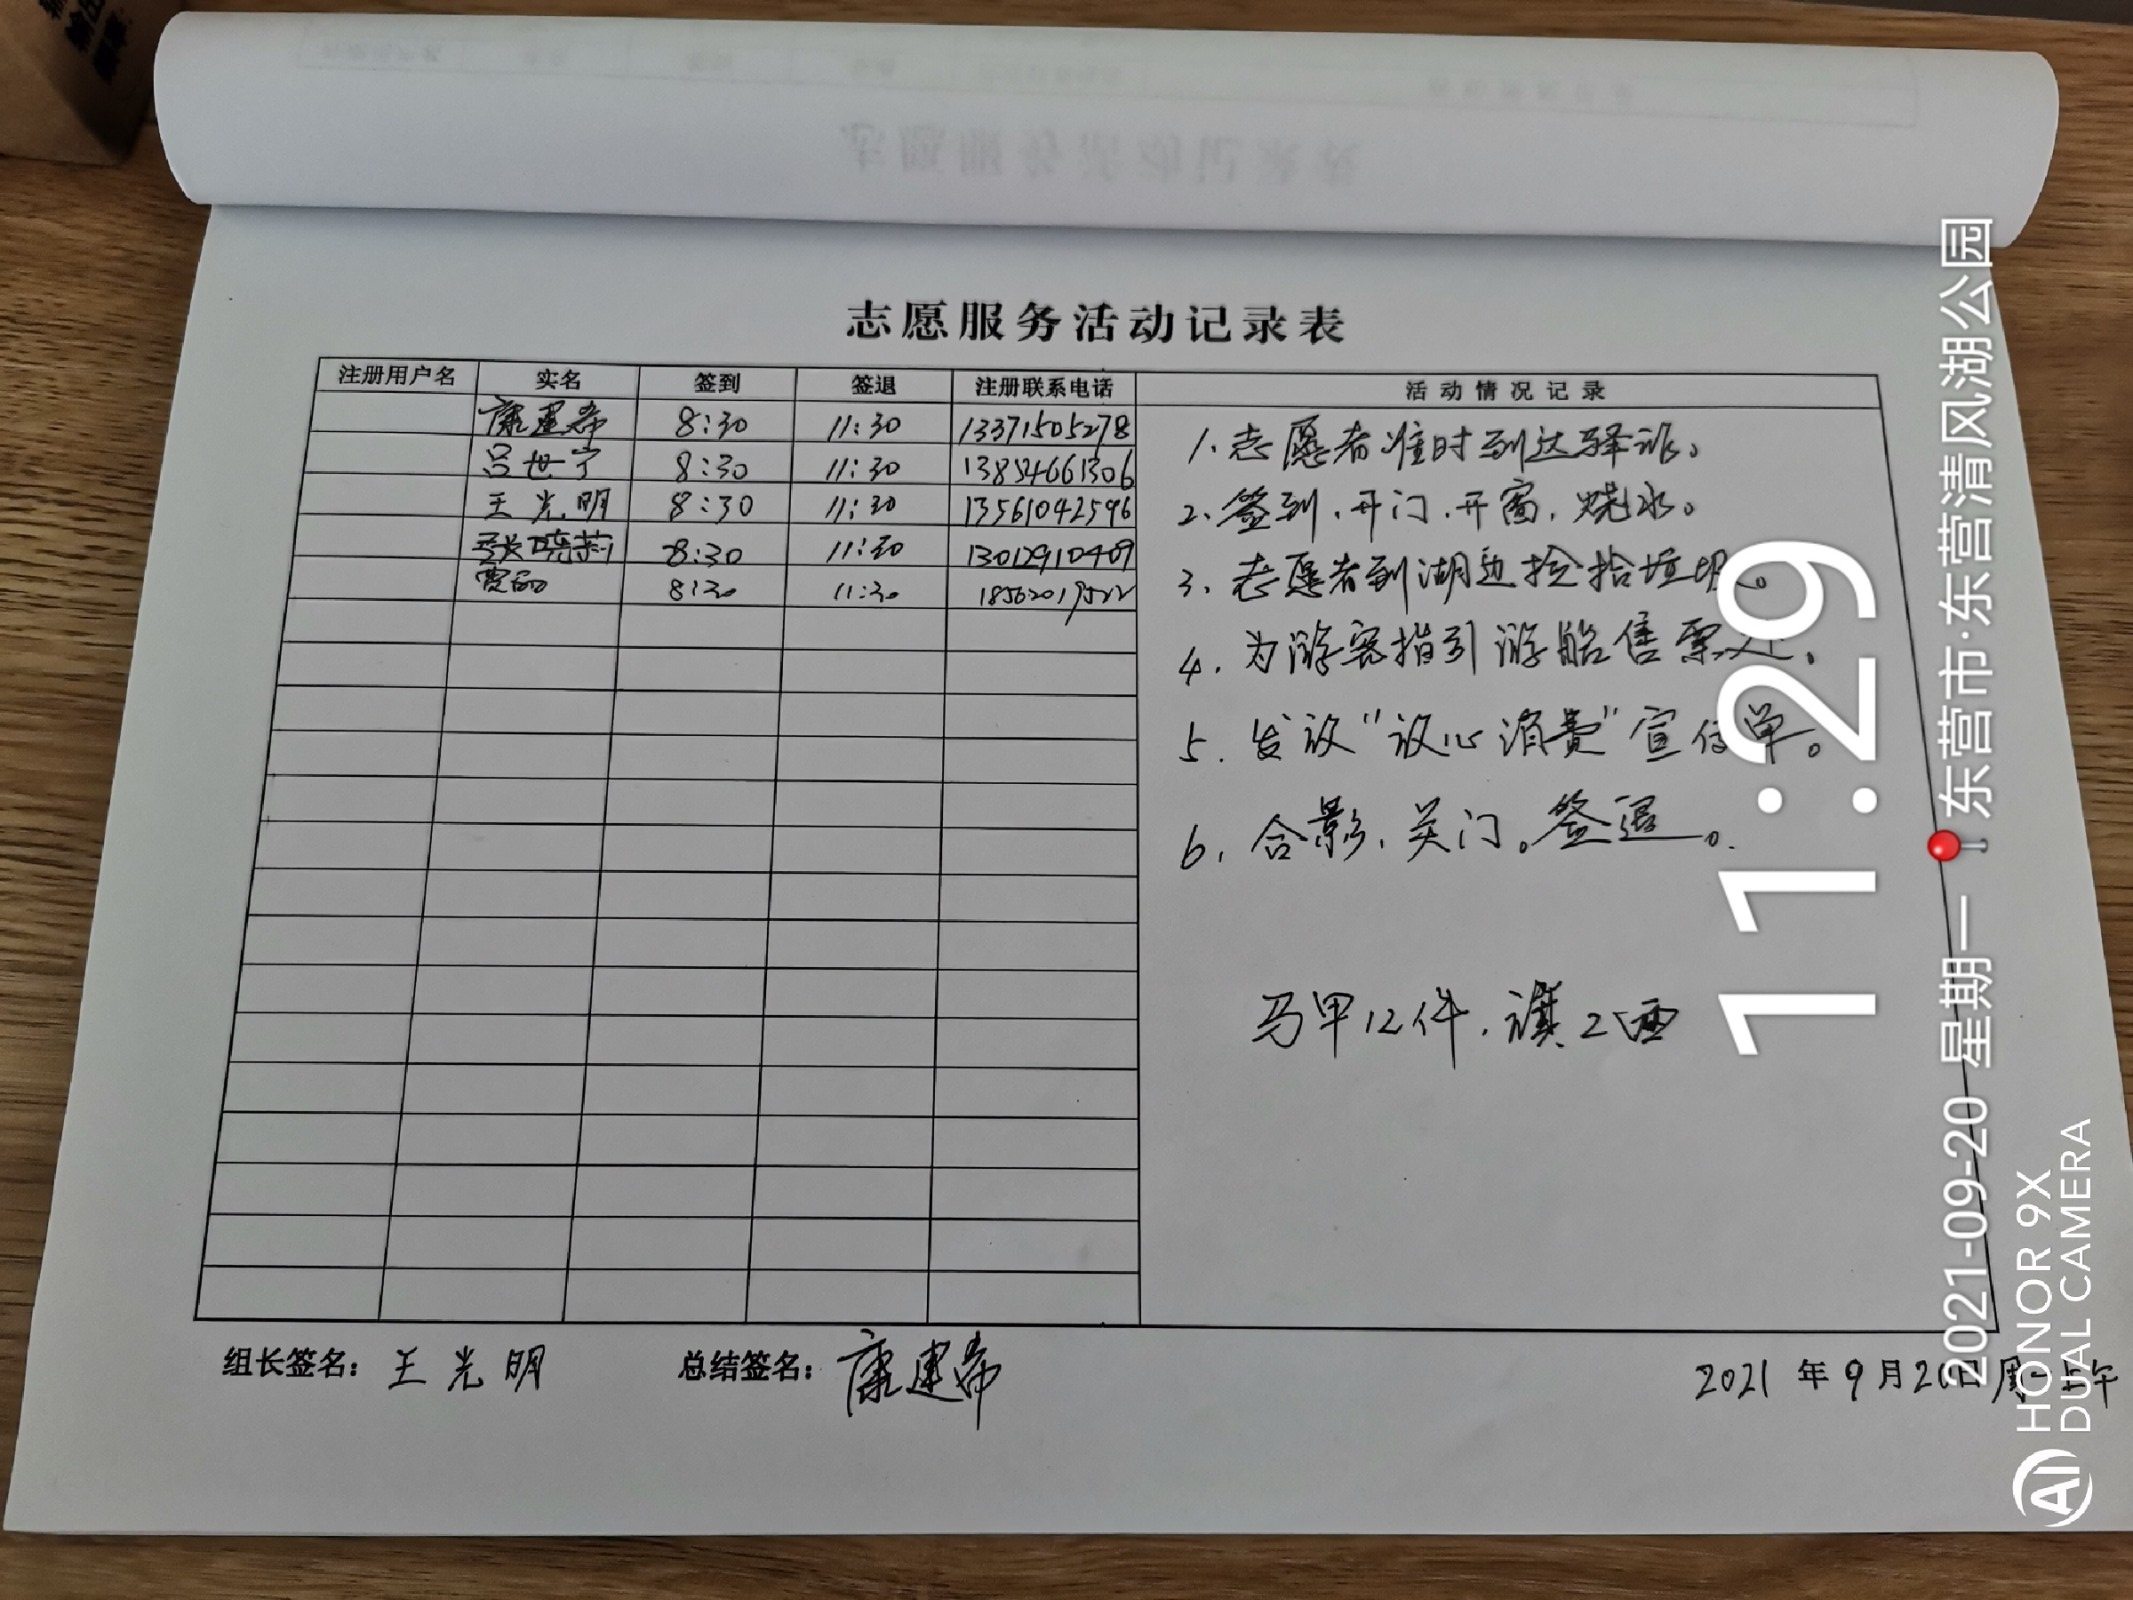 志愿服务活动记录表
注册用户名 实名 签到 签退 注册联系电话 活动情况记录
康建帝 8:30 11:30 13371505278
吕世宁 8:30 11:30 13854661306
王光明 8:30 11:30 13561042596
张晓莉 8:30 11:30 13012910409
8:30 11:30 18562019522
1、志愿者准时到达驿站。
2、签到、开门、开窗、烧水。
3、志愿者到湖边捡拾垃圾。
4、为游客指引游船售票处。
5、发放“放心消费”宣传单。
6、合影、关门。签退。
马甲12件、旗2面
组长签名：王光明 总结签名：康建帝 2021年9月20日周一上午
11:29
2021-09-20 星期一 东营市·东营清风湖公园
HONOR 9X
DUAL CAMERA
AI